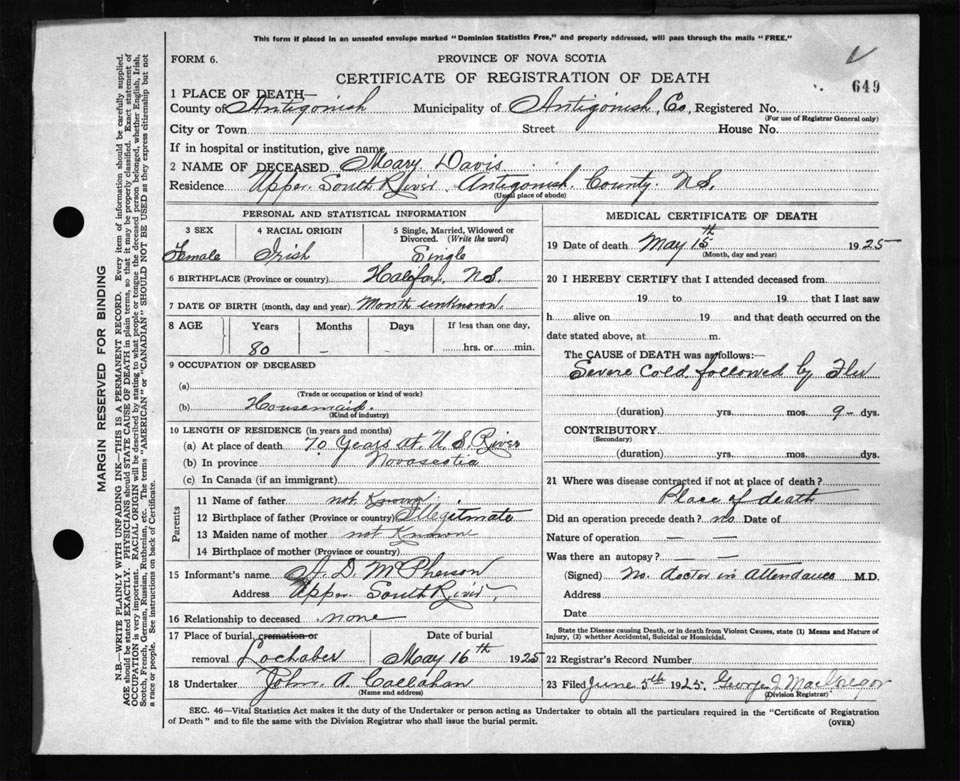 This form if placed in an unsealed envelope marked "Dominion Statistics Free," and properly addressed, will pass through the mails "FREE."
FORM 6.
PROVINCE OF NOVA SCOTIA
CERTIFICATE OF REGISTRATION OF DEATH
649
1 PLACE OF DEATH—
County of Antigonish Municipality of Antigonish Co, Registered No.
(For use of Registrar General only)
City or Town Street House No.
If in hospital or institution, give name
2 NAME OF DECEASED Mary Davis
Residence Upper South River Antigonish County N.S.
(Usual place of abode)
PERSONAL AND STATISTICAL INFORMATION
3 SEX 4 RACIAL ORIGIN 5 Single, Married, Widowed or Divorced. (Write the word)
Female Irish Single
6 BIRTHPLACE (Province or country) Halifax, N.S.
7 DATE OF BIRTH (month, day and year) Month unknown.
8 AGE Years Months Days If less than one day,
80 - hrs. or min.
9 OCCUPATION OF DECEASED
(a)
(Trade or occupation or kind of work)
(b) Housemaid.
(Kind of industry)
10 LENGTH OF RESIDENCE (in years and months)
(a) At place of death 70 Years at U.S. River
(b) In province Novascotia
(c) In Canada (if an immigrant)
Parents
11 Name of father not Known
12 Birthplace of father (Province or country) Illegitmate
13 Maiden name of mother not Known
14 Birthplace of mother (Province or country)
15 Informant's name A. D. McPherson
Address Upper South River,
16 Relationship to deceased none
17 Place of burial, cremation or Date of burial
removal Lochaber May 16th 1925
18 Undertaker John A Callahan
(Name and address)
MEDICAL CERTIFICATE OF DEATH
19 Date of death May 15th 1925
(Month, day and year)
20 I HEREBY CERTIFY that I attended deceased from
19 to 19 that I last saw
h alive on 19 and that death occurred on the
date stated above, at m.
The CAUSE of DEATH was as follows:—
Severe Cold followed by Flu
(duration) yrs. mos. 9- dys.
CONTRIBUTORY
(Secondary)
(duration) yrs. mos. dys.
21 Where was disease contracted if not at place of death?
Place of death
Did an operation precede death? no Date of
Nature of operation — —
Was there an autopsy? — —
(Signed) No. doctor in Attendance M.D.
Address
Date
State the Disease causing Death, or in death from Violent Causes, state (1) Means and Nature of
Injury, (2) whether Accidental, Suicidal or Homicidal.
22 Registrar's Record Number
23 Filed June 5th 1925, George J MacGregor
(Division Registrar)
SEC. 46—Vital Statistics Act makes it the duty of the Undertaker or person acting as Undertaker to obtain all the particulars required in the "Certificate of Registration
of Death" and to file the same with the Division Registrar who shall issue the burial permit.
(OVER)
MARGIN RESERVED FOR BINDING
N.B.—WRITE PLAINLY WITH UNFADING INK—THIS IS A PERMANENT RECORD. Every item of information should be carefully supplied.
AGE should be stated EXACTLY. PHYSICIANS should STATE CAUSE OF DEATH in plain terms, so that it may be properly classified. Exact statement of
OCCUPATION is very important. RACIAL ORIGIN will be described by stating to what people or tongue the deceased person belonged, whether English, Irish,
Scotch, French, German, Russian, Ruthenian, etc. The terms "AMERICAN" or "CANADIAN" SHOULD NOT BE USED as they express citizenship but not
a race or people. See instructions on back of Certificate.